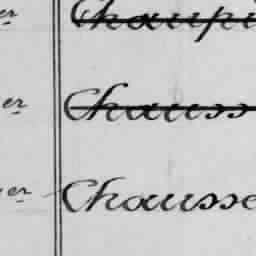 er Chaupi
er Chauss
er Chausse